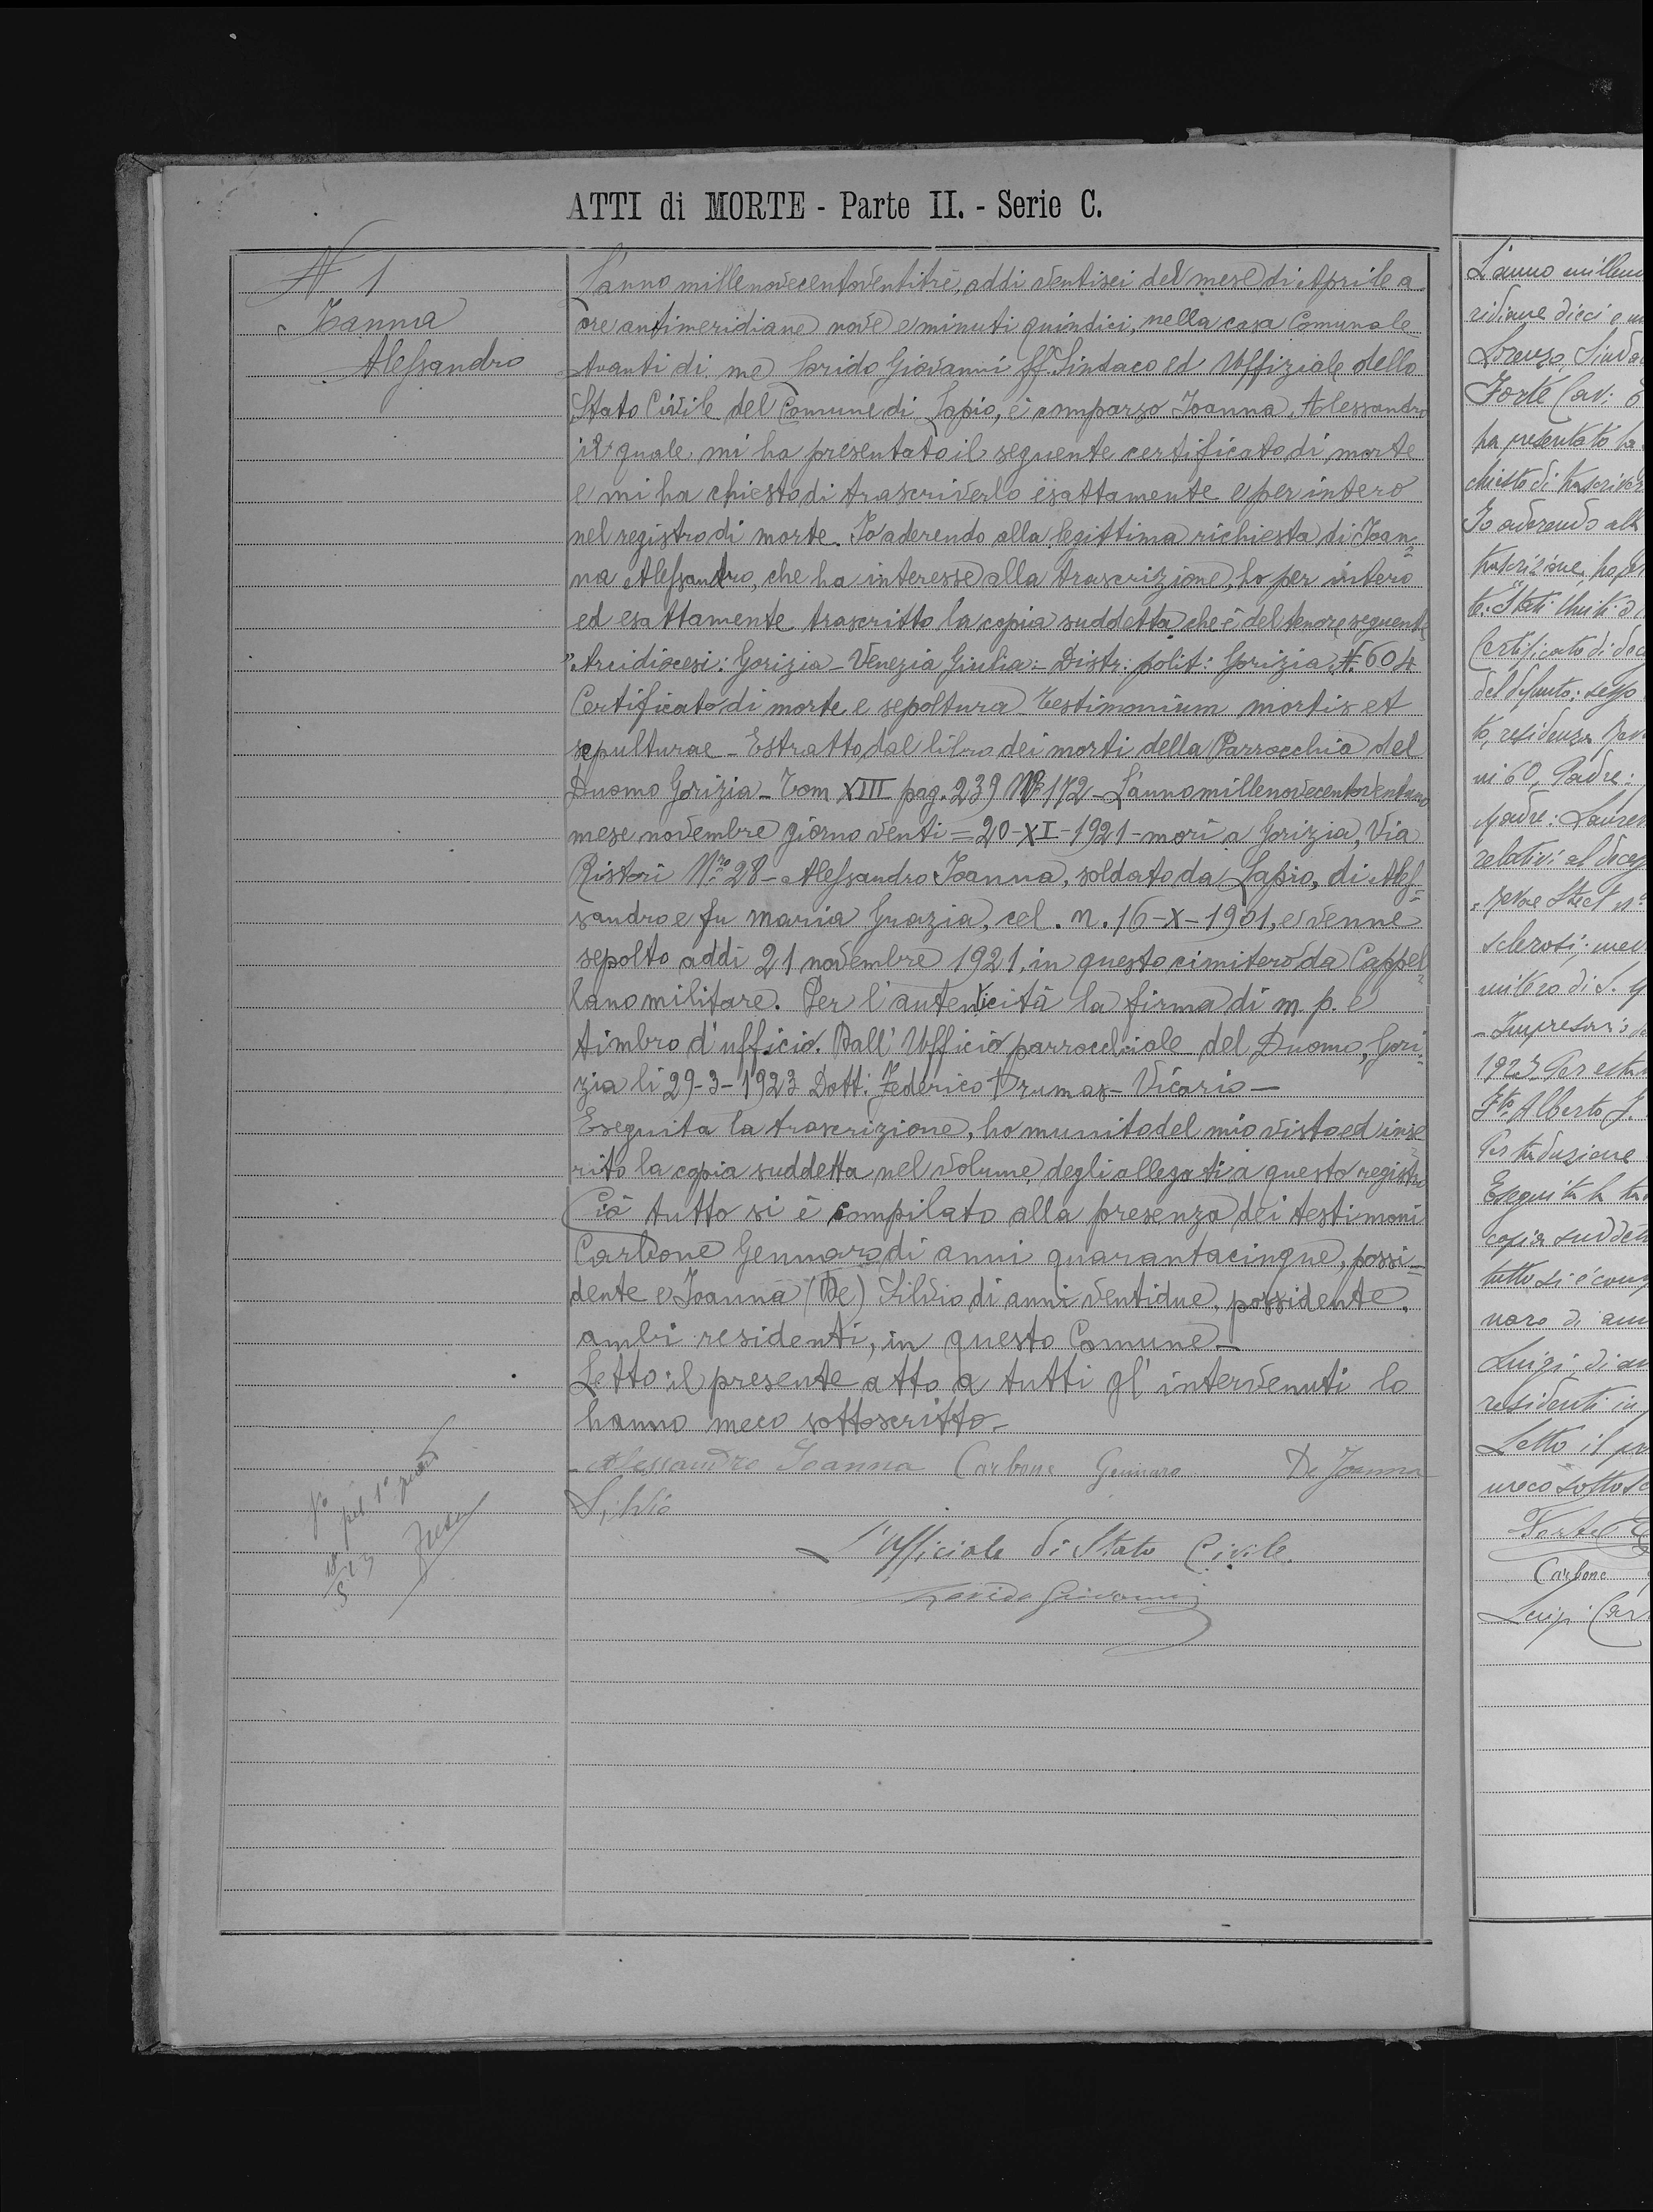 ATTI di MORTE - Parte II. - Serie C.
N 1
Ioanna
Alessandro
L'anno millenovecentoventitre, addi ventisei del mese di Aprile a
ore antimeridiane nove e minuti quindici, nella casa Comunale
Avanti di me Lorido Giovanni ff. Sindaco ed Uffiziale dello
Stato Civile del Comune di Lapio, è comparso Ioanna Alessandro
il quale mi ha presentato il seguente certificato di morte
e mi ha chiesto di trascriverlo esattamente e per intero
nel registro di morte. Io aderendo alla legittima richiesta di Ioan=
na Alessandro, che ha interesse alla trascrizione, ho per intero
ed esattamente trascritto la copia suddetta che è del tenore seguente
"Arcidiocesi: Gorizia - Venezia Giulia - Distr. polit: Gorizia N. 604
Certificato di morte e sepoltura - Testimonium mortis et
sepulturae - Estratto dal libro dei morti della Parrocchia del
Duomo Gorizia - Tom XIII pag. 239 Nº 172 - L'anno millenovecentoventuno
mese novembre giorno venti = 20-XI-1921 - morì a Gorizia, Via
Ristori Nro 28 - Alessandro Ioanna, soldato da Lapio, di Ales=
sandro e fu Maria Grazia, cel. n. 16-X-1901, e venne
sepolto addi 21 novembre 1921 in questo cimitero da Cappel=
lano militare. Per l'autenticità la firma di m. p. e
timbro d'ufficio. Dall'Ufficio parrocchiale del Duomo, Gori=
zia li 29-3-1923 Dott. Federico Drumas - Vicario -
Eseguita la trascrizione, ho munito del mio visto ed inse=
rito la copia suddetta nel volume degli allegati a questo registro
Ciò tutto si è compilato alla presenza dei testimoni
Carbone Gennaro di anni quarantacinque, possi-
dente e Ioanna (De) Silvio di anni ventidue, possidente,
ambi residenti, in questo Comune -
Letto il presente atto a tutti gl'intervenuti lo
hanno meco sottoscritto -
Alessandro Ioanna Carbone Gennaro De Joanna
Silvio
L'Ufficiale di Stato Civile.
Lorido Giovanni
L'anno millen
ridiane dieci e m
Lorenzo, Sinda
Forte Cav:
ha presentato la
chiesto di trascriver
Io aderendo all
trascrizione, ho per
te: Stati Uniti d
Certificato di dec
del defunto: sesso
to, residenza
ni 60, Padre:
Madre: Lauren
relativi al deces
sclerosi;
mitero di S. G
1923 Per estra
Fto Alberto J.
Per traduzione
Eseguita la tra
copia suddet
tutto si è comp
naro di ann
Luigi di an
residenti in
Letto il pr
meco sottosc
Forte
Carbone
Luigi Car